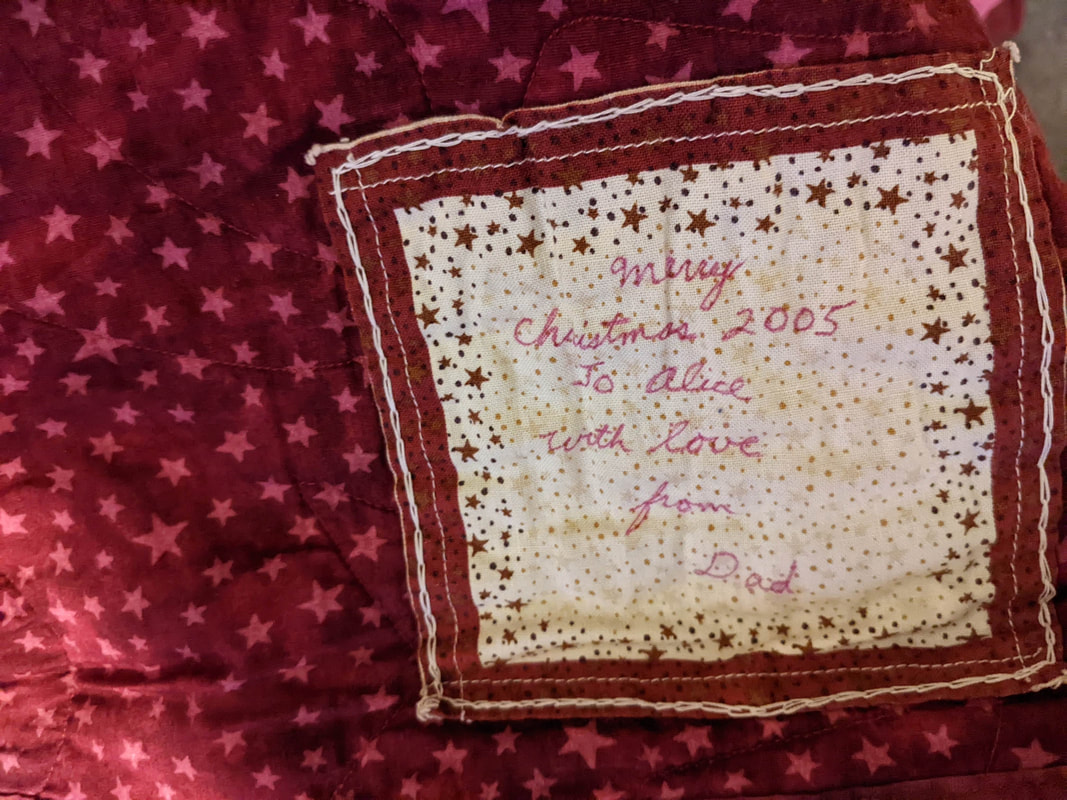 Merry
Christmas 2005
To Alice
with love
from
Dad